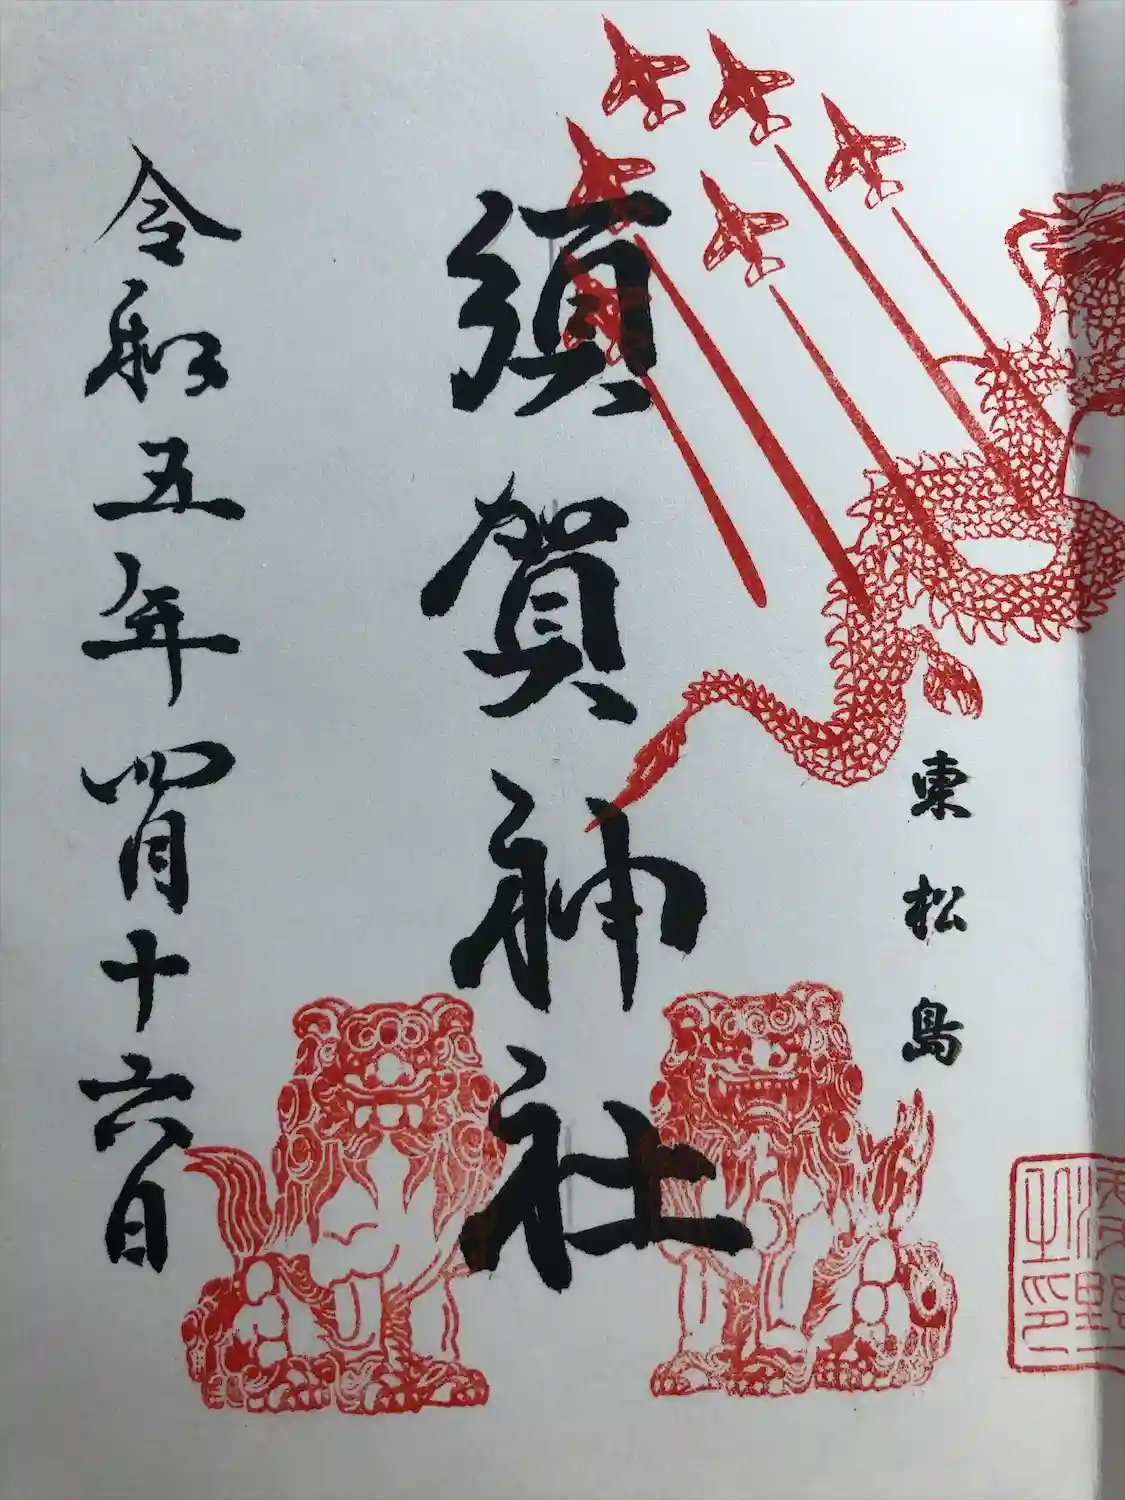 東松島
須賀神社
令和五年四月十六日